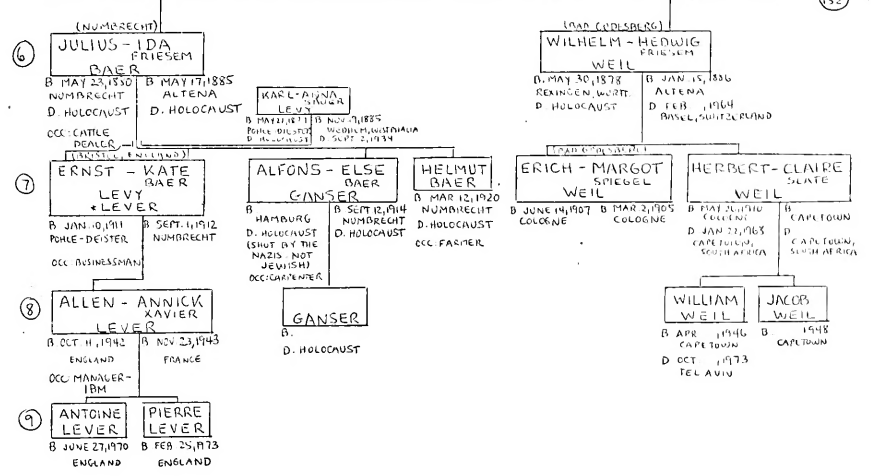 132
(NUMBRECHT)
(BAD GODESBERG)
6
JULIUS - IDA
FRIESEM
BAER
B MAY 23, 1880
NUMBRECHT
D. HOLOCAUST
OCC: CATTLE
DEALER
B MAY 17, 1885
ALTENA
D. HOLOCAUST
KARL-ANNA
LEVY
B MAY 21,
POHLE-DIESTER
D HOLOCAUST
B NOV 9, 1885
WESTPHALIA
D SEPT 2, 1934
WILHELM - HEDWIG
FRIESEM
WEIL
B. MAY 30, 1878
REXINGEN, WURTT.
D HOLOCAUST
B JAN. 15, 1886
ALTENA
D FEB , 1964
BASEL, SWITZERLAND
(BRISTOL, ENGLAND)
(BAD GODESBERG)
7
ERNST - KATE
BAER
LEVY
*LEVER
B JAN. 10, 1911
POHLE-DEISTER
OCC: BUSINESSMAN
B SEPT. 1, 1912
NUMBRECHT
ALFONS - ELSE
BAER
GANSER
B
HAMBURG
D. HOLOCAUST
(SHOT BY THE
NAZIS - NOT
JEWISH)
OCC: CARPENTER
B SEPT 12, 1914
NUMBRECHT
D. HOLOCAUST
HELMUT
BAER
B MAR 12, 1920
NUMBRECHT
D. HOLOCAUST
OCC: FARMER
ERICH - MARGOT
SPIEGEL
WEIL
B JUNE 14, 1907
COLOGNE
B MAR 2, 1905
COLOGNE
HERBERT - CLAIRE
SLATE
WEIL
B MAY 26, 1910
COLOGNE
D JAN 22, 1968
CAPETOWN,
SOUTH AFRICA
B
CAPETOWN
D
CAPETOWN,
SOUTH AFRICA
8
ALLEN - ANNICK
XAVIER
LEVER
B OCT. 11, 1942
ENGLAND
OCC: MANAGER -
IBM
B NOV 23, 1943
FRANCE
GANSER
B.
D. HOLOCAUST
WILLIAM
WEIL
B APR , 1946
CAPETOWN
D OCT , 1973
TEL AVIV
JACOB
WEIL
B. 1948
CAPETOWN
9
ANTOINE
LEVER
B JUNE 27, 1970
ENGLAND
PIERRE
LEVER
B FEB 25, 1973
ENGLAND